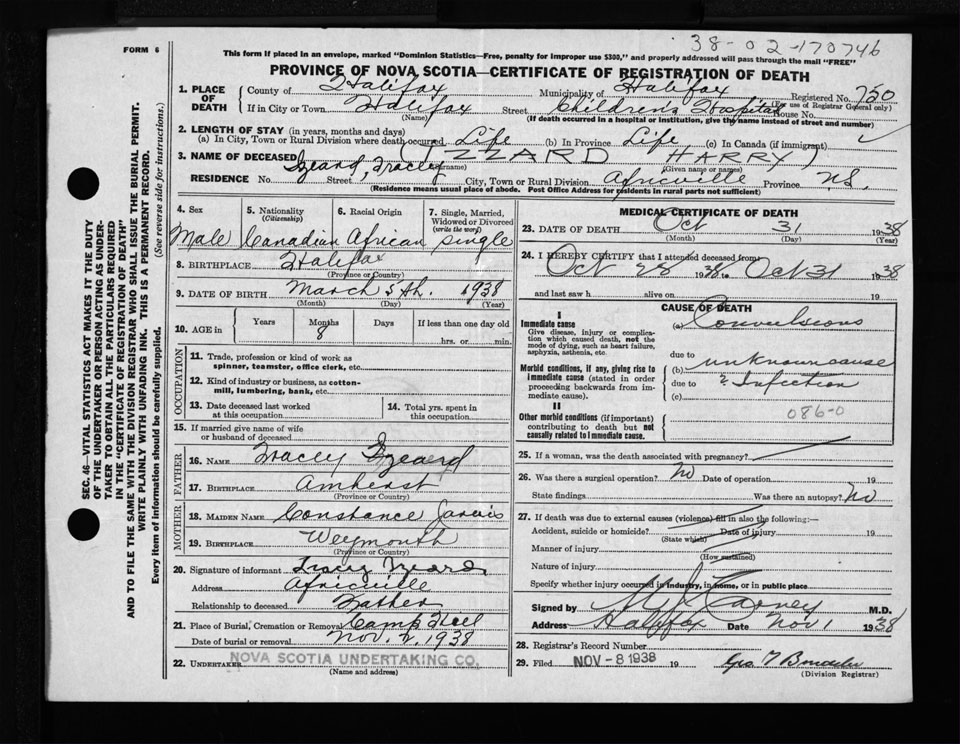 38-02-170746
FORM 6
This form if placed in an envelope, marked "Dominion Statistics—Free, penalty for improper use $300," and properly addressed will pass through the mail "FREE"
PROVINCE OF NOVA SCOTIA—CERTIFICATE OF REGISTRATION OF DEATH
1. PLACE OF DEATH
County of Halifax Municipality of Halifax Registered No. 750
(For use of Registrar General only)
If in City or Town Halifax Street Children's Hospital House No.
(Name) (If death occurred in a hospital or institution, give the name instead of street and number)
2. LENGTH OF STAY (in years, months and days)
(a) In City, Town or Rural Division where death occurred Life (b) In Province Life (c) In Canada (if immigrant)
IZZARD HARRY
3. NAME OF DECEASED Izzard, Tracey
(Surname) (Given name or names)
RESIDENCE No. Street City, Town or Rural Division Africville Province N.S.
(Residence means usual place of abode. Post Office Address for residents in rural parts not sufficient)
SEC. 46—VITAL STATISTICS ACT MAKES IT THE DUTY
OF THE UNDERTAKER OR PERSON ACTING AS UNDER-
TAKER TO OBTAIN ALL THE PARTICULARS REQUIRED
IN THE "CERTIFICATE OF REGISTRATION OF DEATH"
AND TO FILE THE SAME WITH THE DIVISION REGISTRAR WHO SHALL ISSUE THE BURIAL PERMIT.
WRITE PLAINLY WITH UNFADING INK. THIS IS A PERMANENT RECORD.
Every item of information should be carefully supplied. (See reverse side for instructions.)
4. Sex 5. Nationality 6. Racial Origin 7. Single, Married,
(Citizenship) Widowed or Divorced
(write the word)
Male Canadian African Single
8. BIRTHPLACE Halifax
(Province or Country)
9. DATE OF BIRTH March 5th. 1938
(Month) (Day) (Year)
10. AGE in Years Months Days If less than one day old
8
hrs. or min.
OCCUPATION
11. Trade, profession or kind of work as
spinner, teamster, office clerk, etc.
12. Kind of industry or business, as cotton-
mill, lumbering, bank, etc.
13. Date deceased last worked at this occupation
14. Total yrs. spent in this occupation
15. If married give name of wife
or husband of deceased
FATHER
16. Name Tracey Izzard
17. BIRTHPLACE Amherst
(Province or Country)
MOTHER
18. MAIDEN NAME Constance Jarvis
19. BIRTHPLACE Weymouth
(Province or Country)
20. Signature of informant Tracey Izzard
Address Africville
Relationship to deceased Father
21. Place of Burial, Cremation or Removal Camp Hill
Date of burial or removal Nov. 2, 1938
22. UNDERTAKER NOVA SCOTIA UNDERTAKING CO.
(Name and address)
MEDICAL CERTIFICATE OF DEATH
23. DATE OF DEATH Oct 31 1938
(Month) (Day) (Year)
24. I HEREBY CERTIFY that I attended deceased from
Oct 28 1938 to Oct 31 1938
and last saw h alive on 19
CAUSE OF DEATH
I
Immediate cause
Give disease, injury or complica-
tion which caused death, not the
mode of dying, such as heart failure,
asphyxia, asthenia, etc.
(a) Convulsions
due to
Morbid conditions, if any, giving rise to
immediate cause (stated in order
proceeding backwards from im-
mediate cause).
(b) unknown cause
due to ? Infection
(c)
II
Other morbid conditions (if important)
contributing to death but not
causally related to immediate cause.
086-0
25. If a woman, was the death associated with pregnancy?
26. Was there a surgical operation? No Date of operation 19
State findings Was there an autopsy? no
27. If death was due to external causes (violence) fill in also the following:—
Accident, suicide or homicide? Date of injury 19
(State which)
Manner of injury
(How sustained)
Nature of injury
Specify whether injury occurred in industry, in home, or in public place
Signed by Carney M.D.
Address Halifax Date Nov 1 1938
28. Registrar's Record Number
29. Filed NOV -8 1938 19
(Division Registrar)